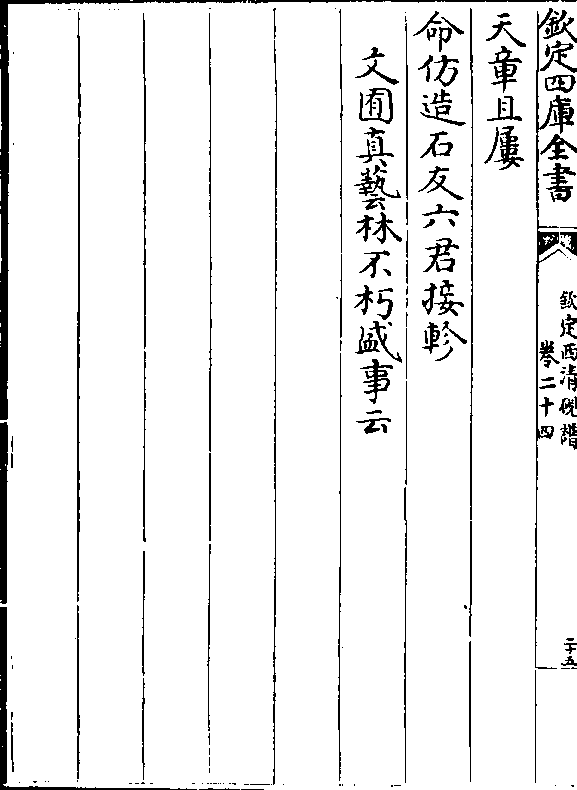 欽定四庫全書
欽定西清硯譜
卷二十四
二十五
天章且屢
命仿造石友六君接軫
文囿真藝林不朽盛事云